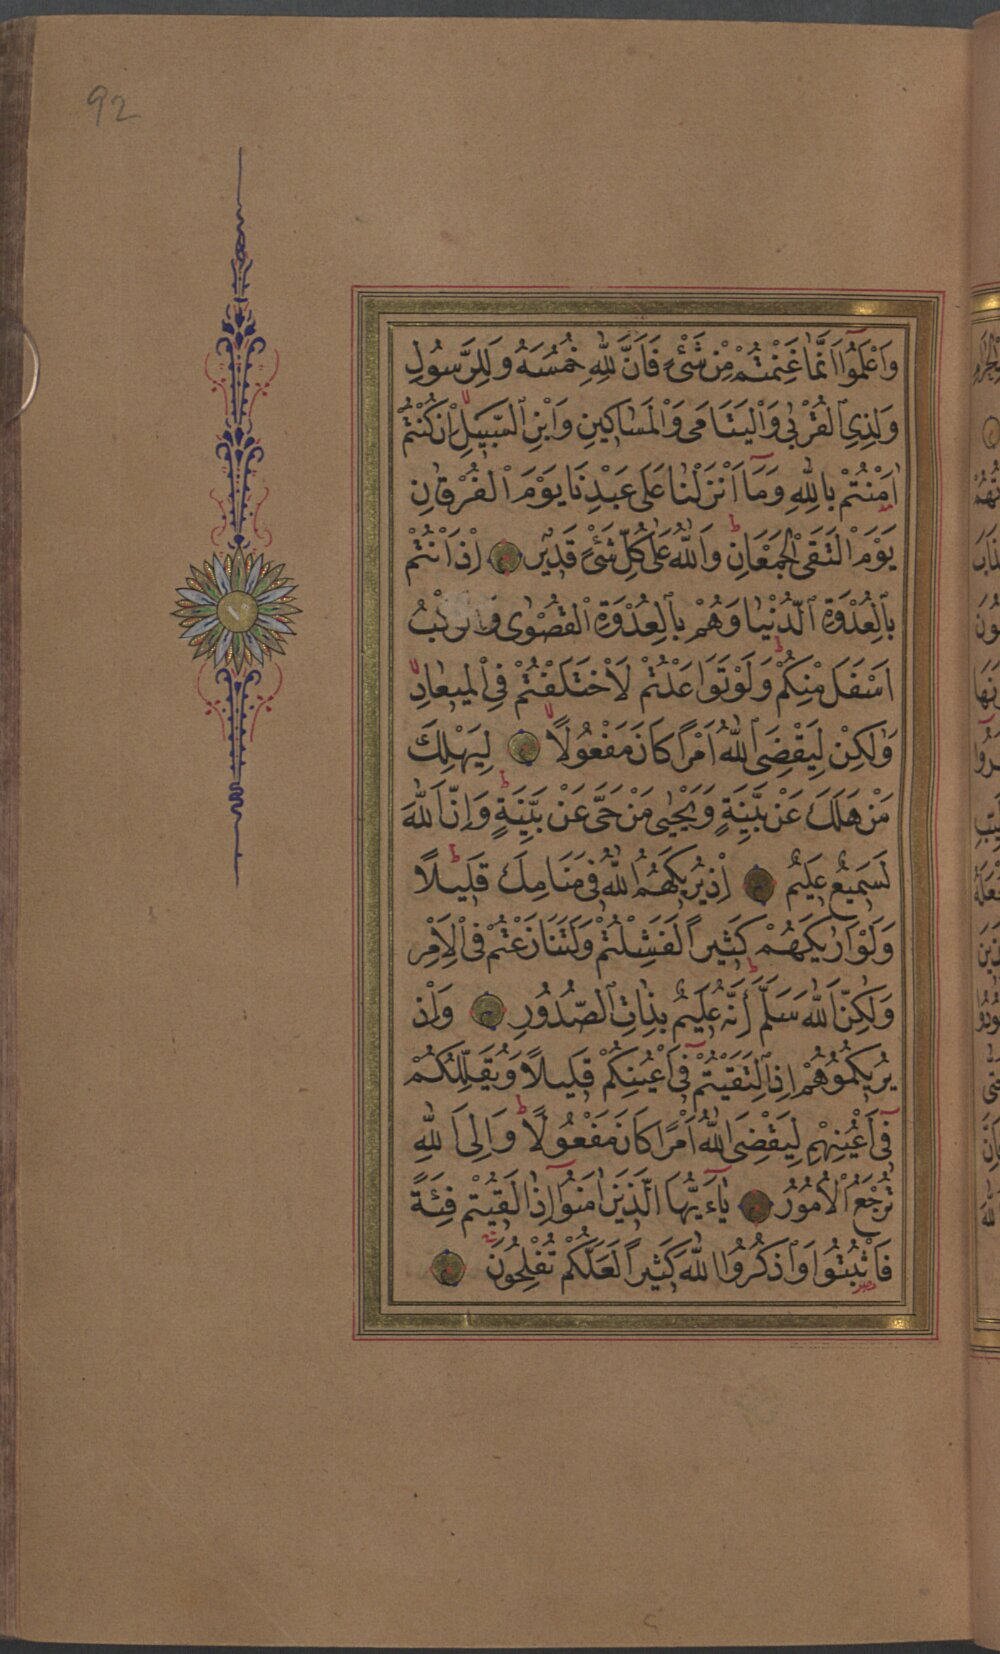 92
وَاعْلَمُوا اَنَّمَا غَنِمْتُمْ مِنْ شَيْءٍ فَاَنَّ لِلّٰهِ خُمُسَهُ وَلِلرَّسُولِ
وَلِذِي الْقُرْبٰى وَالْيَتَامٰى وَالْمَسَاكِينِ وَابْنِ السَّبِيلِ اِنْ كُنْتُمْ
اٰمَنْتُمْ بِاللّٰهِ وَمَا اَنْزَلْنَا عَلٰى عَبْدِنَا يَوْمَ الْفُرْقَانِ
يَوْمَ الْتَقَى الْجَمْعَانِ وَاللّٰهُ عَلٰى كُلِّ شَيْءٍ قَدِيرٌ اِذْ اَنْتُمْ
بِالْعُدْوَةِ الدُّنْيَا وَهُمْ بِالْعُدْوَةِ الْقُصْوٰى وَالرَّكْبُ
اَسْفَلَ مِنْكُمْ وَلَوْ تَوَاعَدْتُمْ لَاخْتَلَفْتُمْ فِي الْمِيعَادِ
وَلٰكِنْ لِيَقْضِيَ اللّٰهُ اَمْرًا كَانَ مَفْعُولًا لِيَهْلِكَ
مَنْ هَلَكَ عَنْ بَيِّنَةٍ وَيَحْيٰى مَنْ حَيَّ عَنْ بَيِّنَةٍ وَاِنَّ اللّٰهَ
لَسَمِيعٌ عَلِيمٌ اِذْ يُرِيكَهُمُ اللّٰهُ فِي مَنَامِكَ قَلِيلًا
وَلَوْ اَرٰيكَهُمْ كَثِيرًا لَفَشِلْتُمْ وَلَتَنَازَعْتُمْ فِي الْاَمْرِ
وَلٰكِنَّ اللّٰهَ سَلَّمَ اِنَّهُ عَلِيمٌ بِذَاتِ الصُّدُورِ وَاِذْ
يُرِيكُمُوهُمْ اِذِ الْتَقَيْتُمْ فِي اَعْيُنِكُمْ قَلِيلًا وَيُقَلِّلُكُمْ
فِي اَعْيُنِهِمْ لِيَقْضِيَ اللّٰهُ اَمْرًا كَانَ مَفْعُولًا وَاِلَى اللّٰهِ
تُرْجَعُ الْاُمُورُ يَا اَيُّهَا الَّذِينَ اٰمَنُوا اِذَا لَقِيتُمْ فِئَةً
فَاثْبُتُوا وَاذْكُرُوا اللّٰهَ كَثِيرًا لَعَلَّكُمْ تُفْلِحُونَ